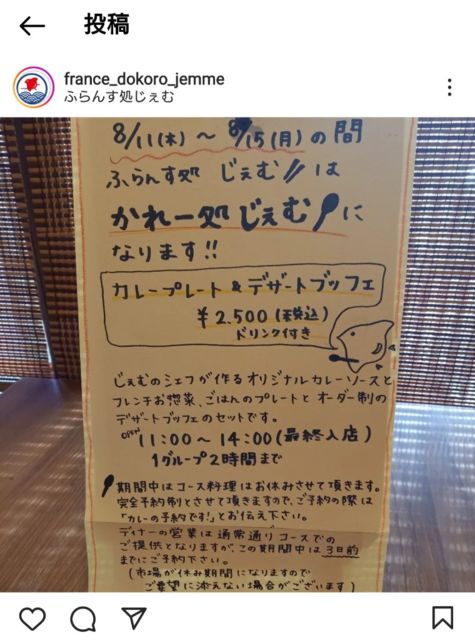 投稿
france_dokoro_jemme
ふらんす処じぇむ
8/11(木)～8/15(月)の間
ふらんす処 じぇむ〃は
かれー処じぇむに
なります!!
カレープレート&デザートブッフェ
¥2,500(税込)
ドリンク付き
じぇむのシェフが作るオリジナルカレーソースと
フレンチお惣菜、ごはんのプレートとオーダー制の
デザートブッフェのセットです。
OPEN 11:00～14:00(最終入店)
1グループ2時間まで
期間中はコース料理はお休みさせて頂きます。
完全予約制とさせて頂きますので、ご予約の際は
「カレーの予約です!」とお伝え下さい。
ディナーの営業は通常通りコースでの
ご提供となりますが、この期間中は3日前
までにご予約下さい。
(市場が休み期間になりますので
ご要望に添えない場合がございます)